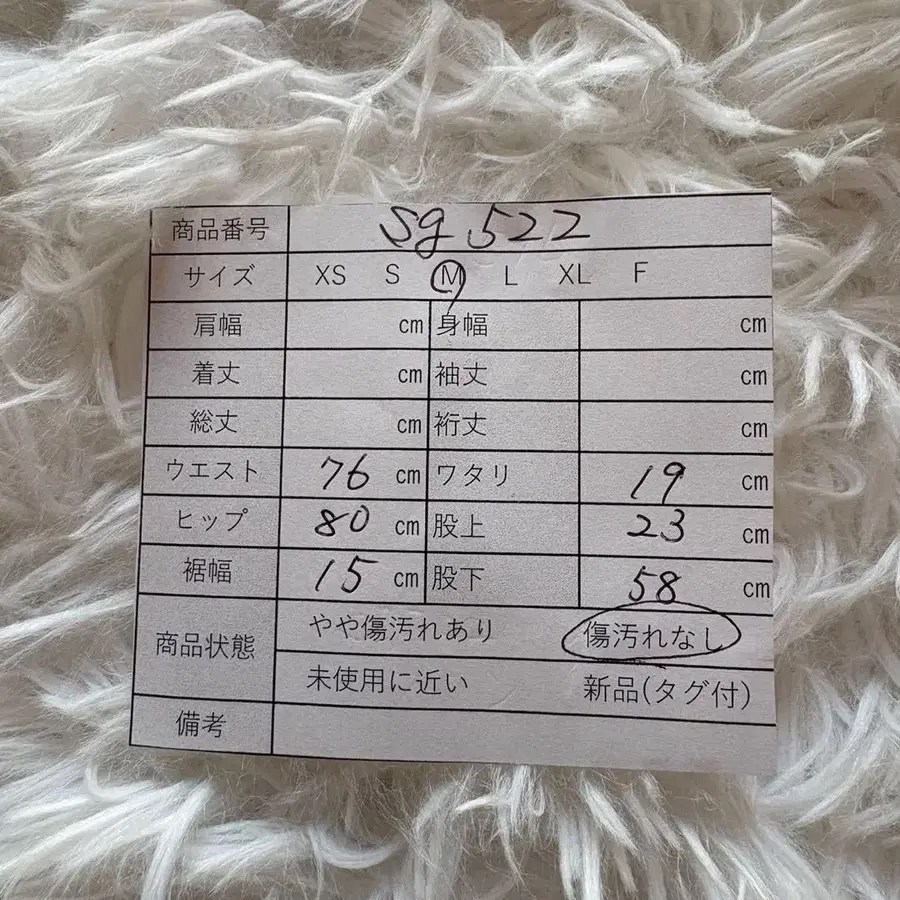 商品番号 sg 522
サイズ XS S M L XL F
肩幅 cm 身幅 cm
着丈 cm 袖丈 cm
総丈 cm 裄丈 cm
ウエスト 76 cm ワタリ 19 cm
ヒップ 80 cm 股上 23 cm
裾幅 15 cm 股下 58 cm
商品状態 やや傷汚れあり 傷汚れなし
未使用に近い 新品(タグ付)
備考